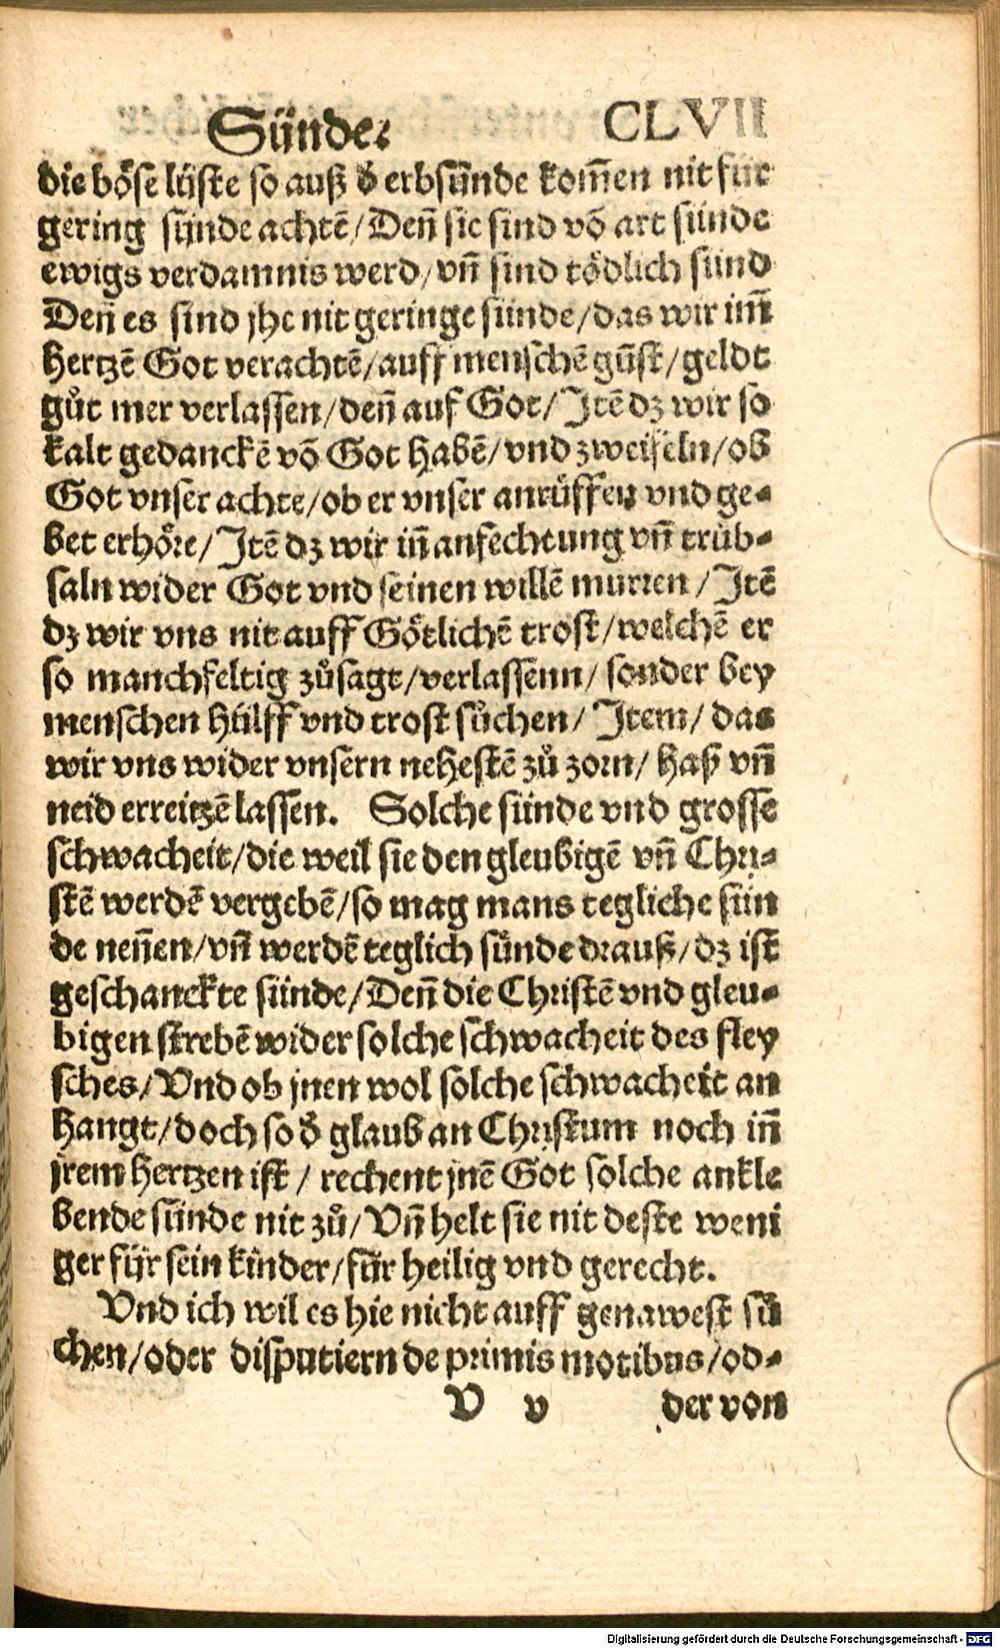 Sünde. CLVII
die böse lüste so auß d̄ erbsünde kom̄en nit für
gering sünde achtē/Deñ sie sind võ art sünde
ewigs verdamnis werd/vñ sind tödlich sünd
Deñ es sind jhe nit geringe sünde/das wir im̄
hertzē Got verachtē/auff menschē gūst/geldt
gůt mer verlassen/deñ auf Got/Jtē dz wir so
kalt gedanckē võ Got habē/vnd zweifeln/ob
Got vnser achte/ob er vnser anrüffen vnd ge-
bet erhöre/Jtē dz wir iñ anfechtung vñ trüb-
saln wider Got vnd seinen willē murren/Jtē
dz wir vns nit auff Götlichē trost/welchē er
so manchfeltig zůsagt/verlassenn/sonder bey
menschen hülff vnd trost sůchen/Jtem/das
wir vns wider vnsern nehestē zů zorn/haß vñ
neid erreitzē lassen. Solche sünde vnd grosse
schwacheit/die weil sie den gleubigē vñ Chri-
stē werdē vergebē/so mag mans tegliche sün
de neñen/vñ werdē teglich sünde drauß/dz ist
geschanckte sünde/Deñ die Christē vnd gleu-
bigen strebē wider solche schwacheit des fley
sches/Vnd ob jnen wol solche schwacheit an
hangt/doch so d̄ glaub an Christum noch iñ
jrem hertzen ist/rechent jnē Got solche ankle
bende sünde nit zů/Vñ helt sie nit deste weni
ger für sein kinder/für heilig vnd gerecht.
Vnd ich wil es hie nicht auff genawest sů
chen/oder disputiern de primis motibus/od-
V v der von
Digitalisierung gefördert durch die Deutsche Forschungsgemeinschaft - DFG